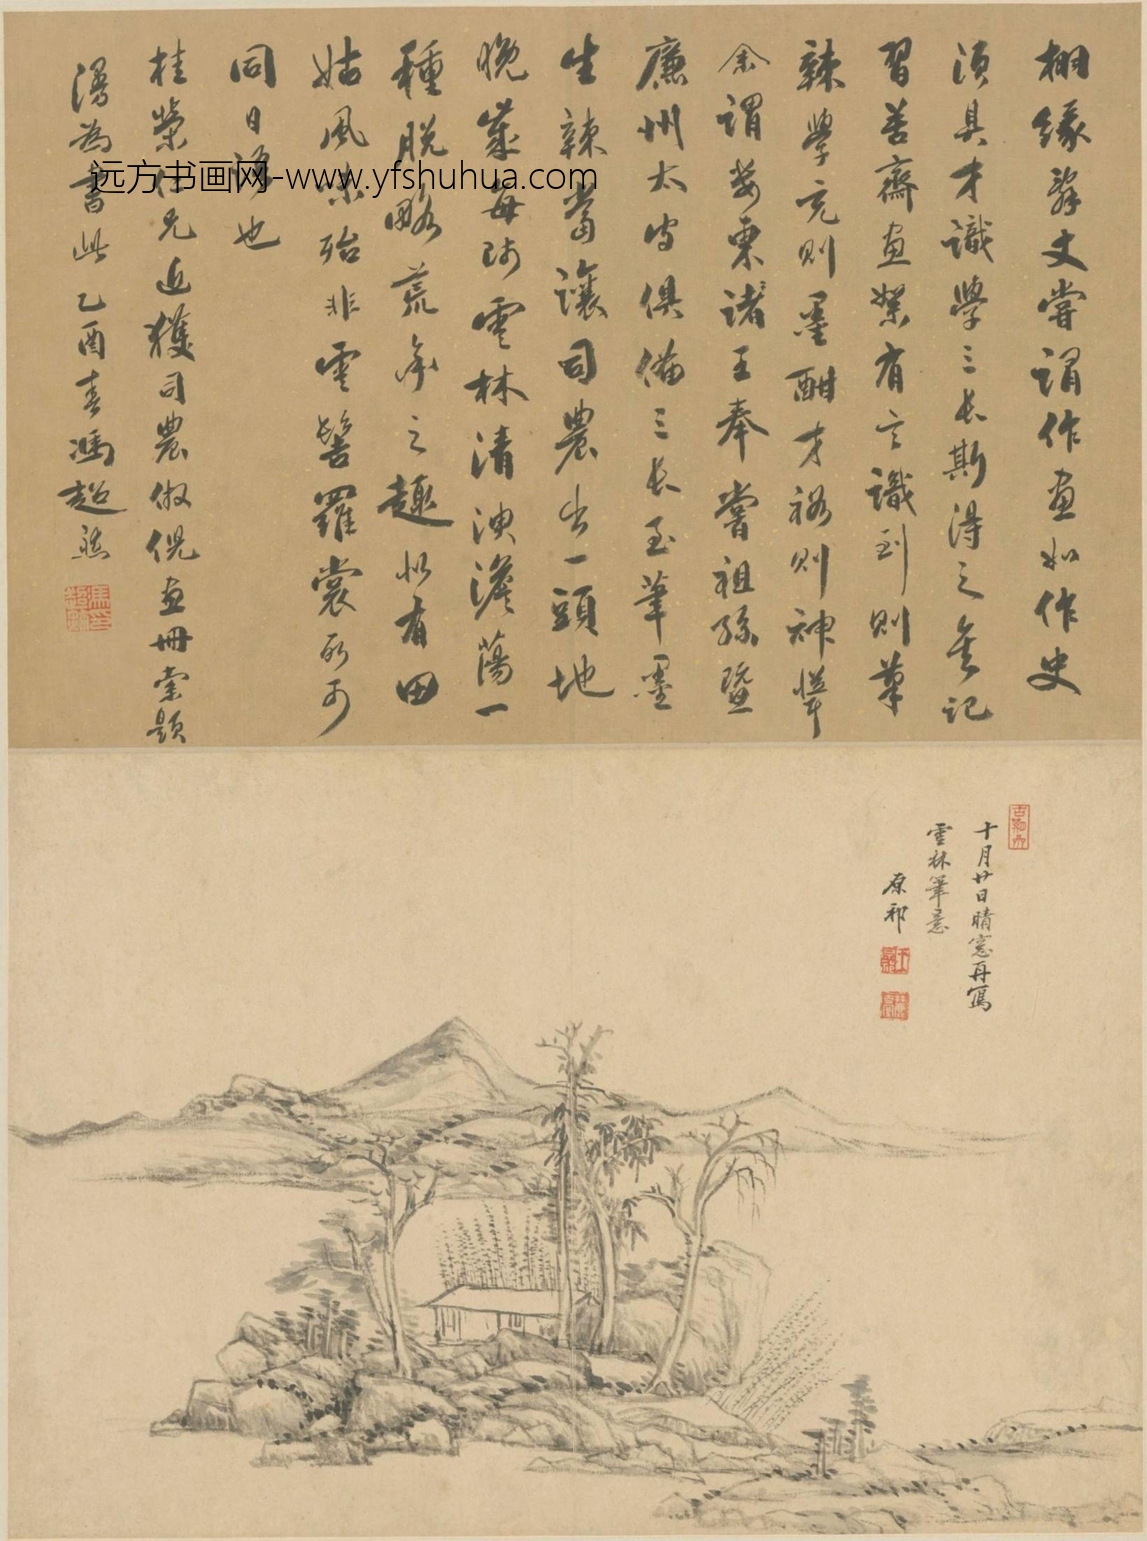 栩緣尊丈嘗謂作畫如作史
須具才識學三長斯得之矣記
習苦齋畫絮有言識到則筆
辣學充則墨酣才裕則神懌
余謂婁東諸王奉嘗祖孫暨
廉州太守俱備三長至筆墨
生辣當讓司農出一頭地
晚歲每師雲林清腴澹蕩一
種脫略荒率之趣以有田
姑風味殆非雲鬟羅裳所可
同日語也
桂榮仁兄近獲司農仿倪畫冊索題
漫為書此乙酉春馮超然
远方书画网-www.yfshuhua.com
十月廿日晴窓再寫
雲林筆意
原祁